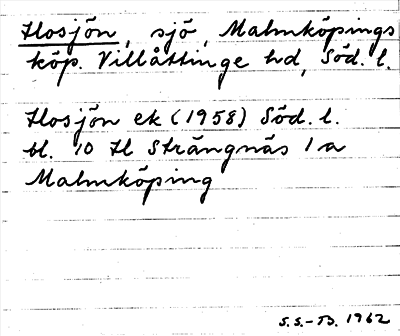 Hosjön, sjö, Malmköpings
köp. Villåttinge hd, Söd. l.
Hosjön ek (1958) Söd. l.
bl. 10 H Strängnäs 1a
Malmköping
S.S.-B. 1962